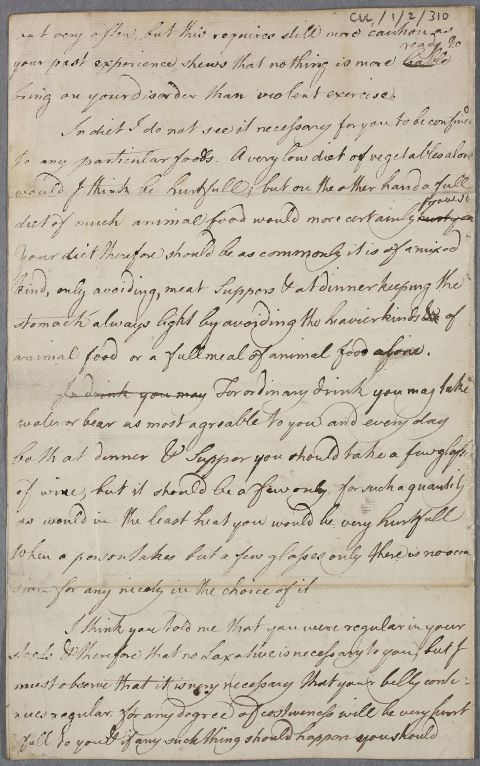 CUL/1/2/310
out very often, but this requires still more caution as
ready to
your past experience shews that nothing is more liable
bring on your disorder than violent exercise.
In diet I do not see it necessary for you to be confined
to any particular foods. A very low diet of vegetables alone
would I think be hurtfull; but on the other hand a full
prove so
diet of much animal food would more certainly
Your diet therefore should be as commonly it is of a mixed
kind, only avoiding, meat Suppers & at dinner keeping the
stomach always light by avoiding the heavier kinds of
animal food or a full meal of animal food alone.
In drink you may For ordinary drink you may take
water or bear as most agreable to you and every day
both at dinner & Supper you should take a few glass
of wine, but it should be a few only, for such a quantity
as would in the least heat you would be very hurtfull
When a person takes but a few glasses only there is no occa
sion for any nicety in the choice of it
I think you told me that you were regular in your
stools & therefore that no Laxative is necessary to you, but I
must observe that it is very necessary that your belly conti-
nues regular, for any degree of costiveness will be very hurt
full to you & if any such thing should happen you should